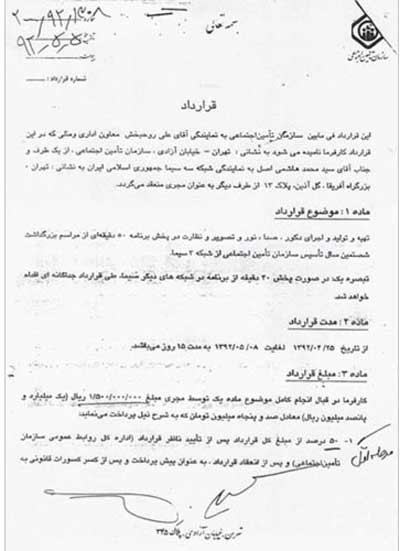 بسمه تعالی
سازمان تأمین اجتماعی
شماره قرارداد :
قرارداد
این قرارداد فی مابین سازمان تأمین‌اجتماعی به نمایندگی آقای علی روحبخش معاون اداری ومالی که در این
قرارداد کارفرما نامیده می شود به نشانی : تهران – خیابان آزادی ، سازمان تأمین اجتماعی ، از یک طرف و
جناب آقای سید محمد هاشمی اصل به نمایندگی شبکه سه سیما جمهوری اسلامی ایران به نشانی : تهران ،
بزرگراه آفریقا ، گل آذین، پلاک ۱۳ از طرف دیگر به عنوان مجری منعقد می‌گردد.
ماده ۱ : موضوع قرارداد
تهیه و تولید و اجرای دکور ، صدا ، نور و تصویر و نظارت در پخش برنامه ۵۰ دقیقه‌ای از مراسم بزرگداشت
شصتمین سال تأسیس سازمان تأمین اجتماعی از شبکه ۳ سیما.
تبصره یک: در صورت پخش ۳۰ دقیقه از برنامه در شبکه های دیگر سیما، طی قرارداد جداگانه ای اقدام
خواهد شد.
ماده ۲ : مدت قرارداد
از تاریخ ۱۳۹۲/۰۴/۲۵ لغایت ۱۳۹۲/۰۵/۰۸ به مدت ۱۵ روز می‌باشد.
ماده ۳ : مبلغ قرارداد
کارفرما در قبال انجام کامل موضوع ماده یک توسط مجری مبلغ ۱/۵۰۰/۰۰۰/۰۰۰ ریال (یک میلیارد و
پانصد میلیون ریال) معادل صد و پنجاه میلیون تومان که به شرح ذیل پرداخت می‌نماید:
۱- ۵۰ درصد از مبلغ کل قرارداد پس از تأیید ناظر قرارداد (اداره کل روابط عمومی سازمان
تأمین‌اجتماعی) و پس از انعقاد قرارداد ، به عنوان پیش پرداخت و پس از کسر کسورات قانونی به
تهران، خیابان آزادی، پلاک ۳۴۵